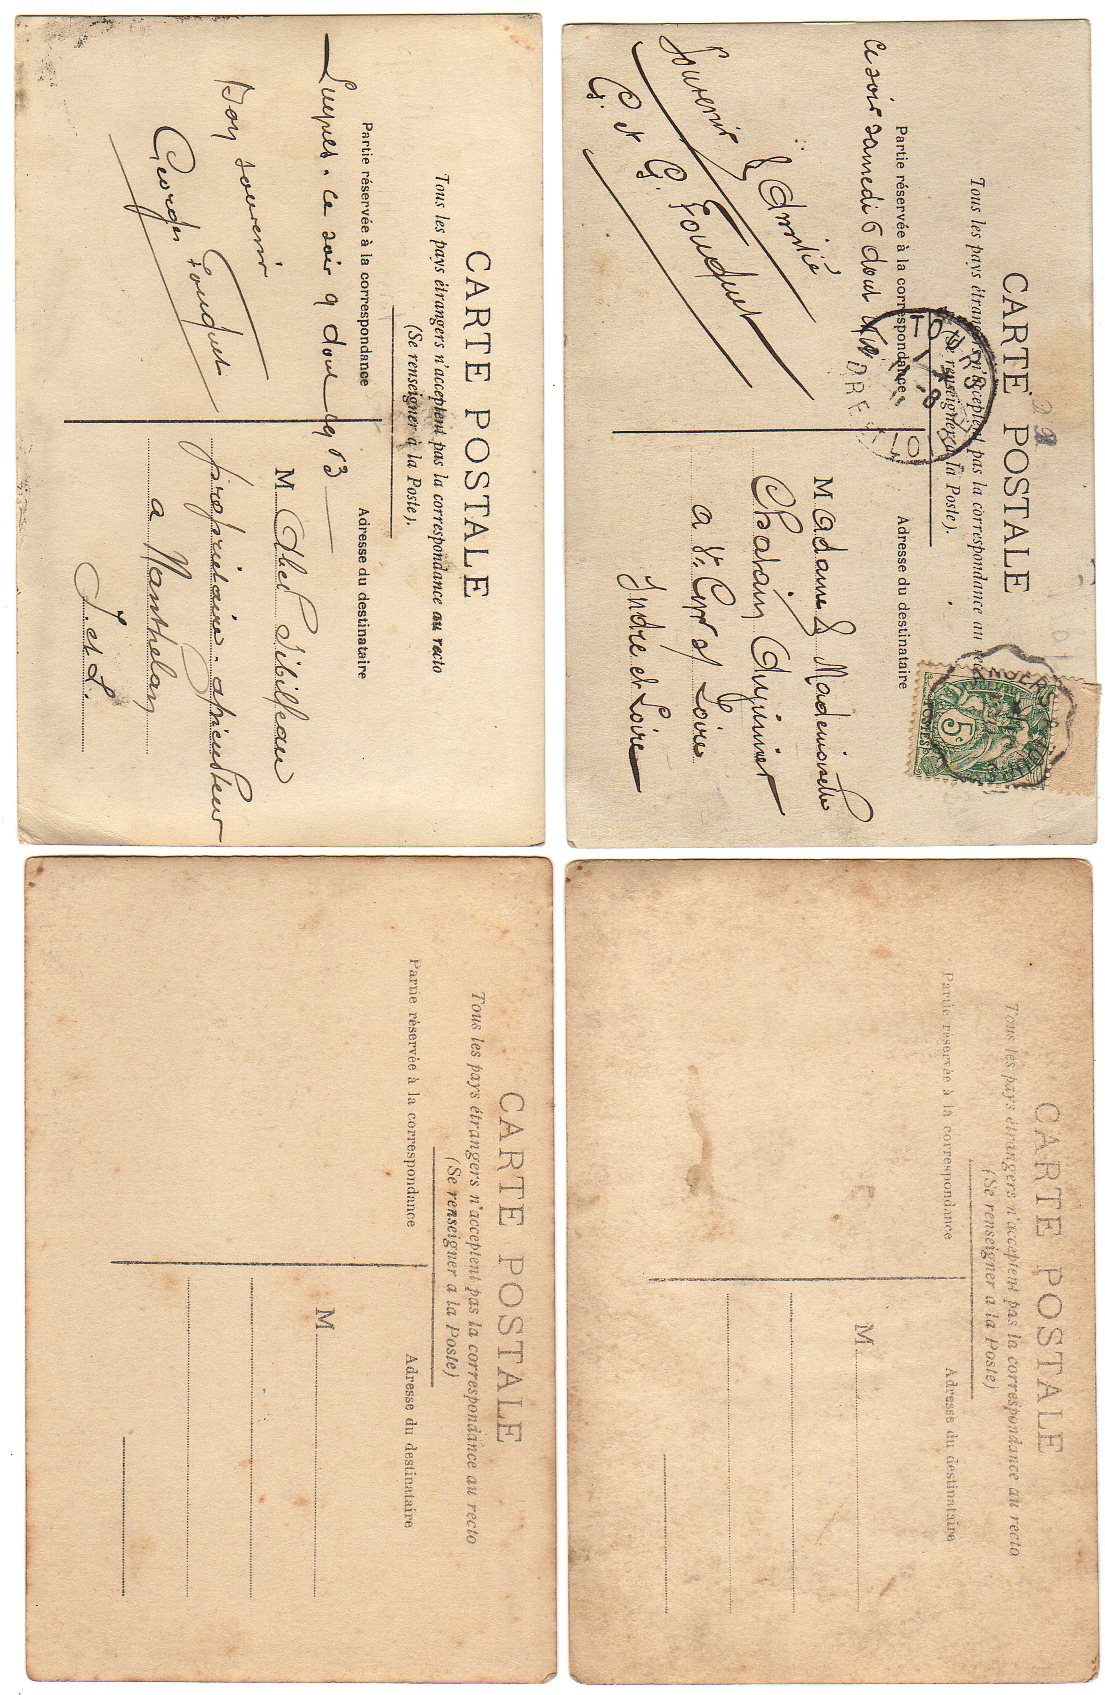 CARTE POSTALE
Tous les pays étrangers n'acceptent pas la correspondance au rec
(Se renseigner à la Poste).
Partie réservée à la correspondance
Adresse du destinataire
ANGERS A TOURS
5c
POSTES
TOURS
11 -8
INDRE ET LOIRE
Ce soir samedi 6 aout
Souvenir & Amitié
G. et G. Fouquet
M Adame & Mademoiselle
Chatain
a St Cyr s/ Loire
Indre et Loire
CARTE POSTALE
Tous les pays étrangers n'acceptent pas la correspondance au recto
(Se renseigner a la Poste)
Partie réservée à la correspondance
Adresse du destinataire
M
CARTE POSTALE
Tous les pays étrangers n'acceptent pas la correspondance au recto
(Se renseigner à la Poste).
Partie réservée à la correspondance
Adresse du destinataire
Luynes. ce soir 9 aout 1913
Bon souvenir
Georges Fouquet
M Abel Sibilleau
propriétaire - apiculteur
a Nanthelan
I. et L.
CARTE POSTALE
Tous les pays étrangers n'acceptent pas la correspondance au recto
(Se renseigner a la Poste)
Partie réservée à la correspondance
Adresse du destinataire
M